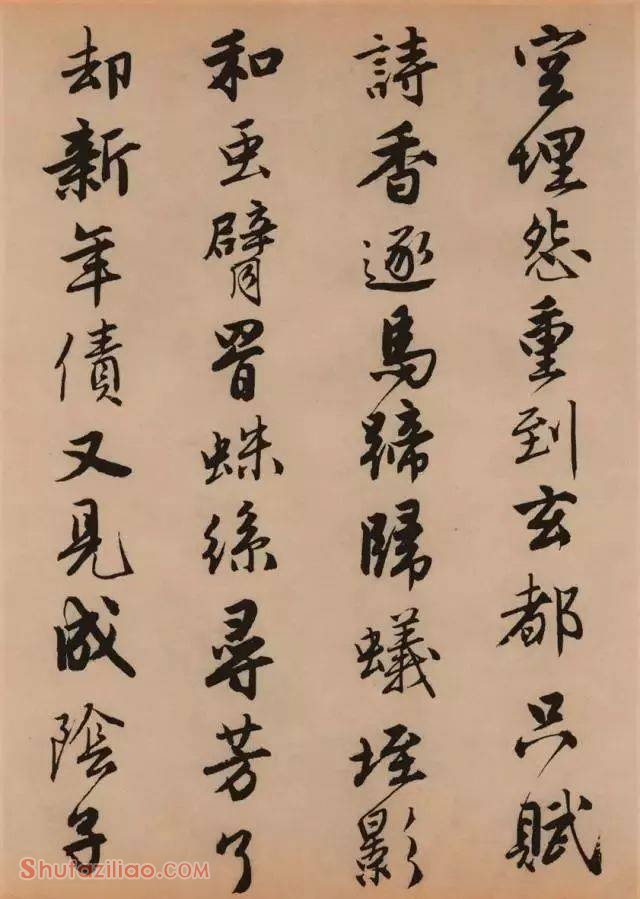 空埋怨重到玄都只賦
詩香逐馬蹄歸蟻垤影
和䖝臂罥蛛絲尋芳了
却新年債又見成陰子
Shufaziliao.com